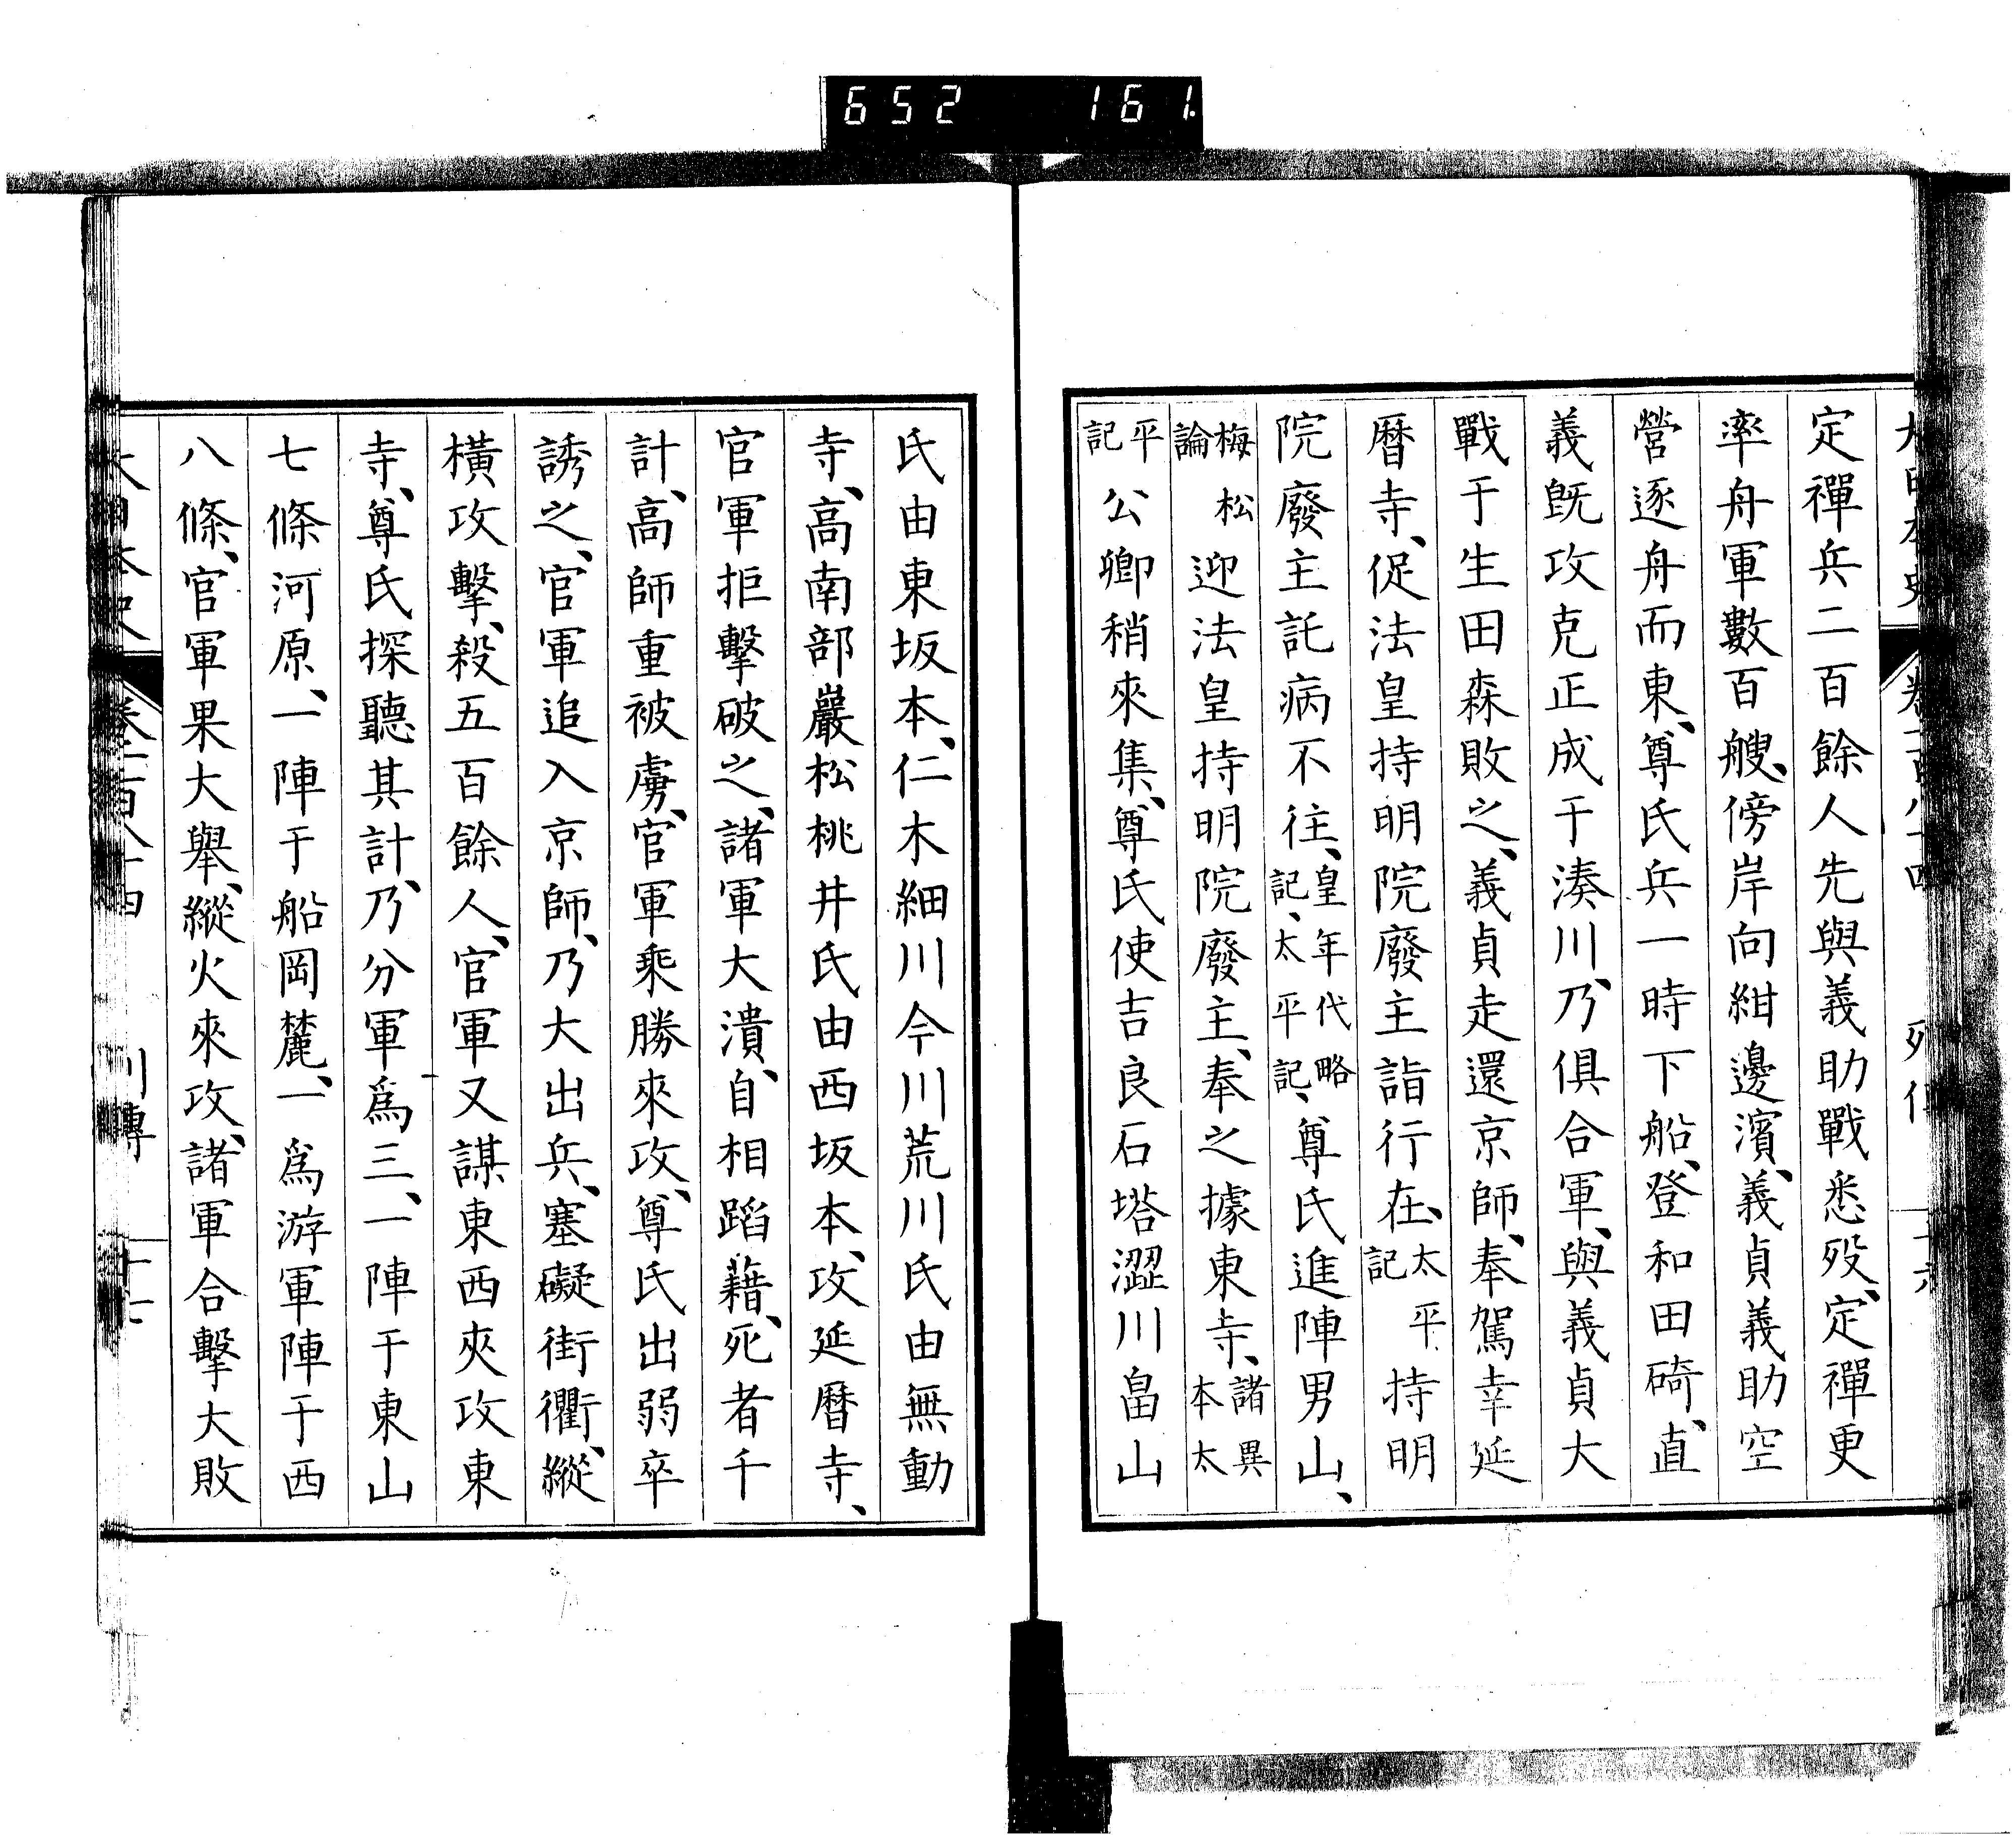 652 161.
定禪兵二百餘人先與義助戰悉歿、定禪更
率舟軍數百艘、傍岸向紺邊濱、義貞義助空
營逐舟而東、尊氏兵一時下船、登和田碕、直
義旣攻克正成于湊川、乃俱合軍、與義貞大
戰于生田森敗之、義貞走還京師、奉駕幸延
曆寺、促法皇持明院廢主詣行在、太平記持明
院廢主託病不往、皇年代略記、太平記、尊氏進陣男山、
梅松論迎法皇持明院廢主、奉之據東寺、諸異本太
平記公卿稍來集、尊氏使吉良石塔澀川畠山
氏由東坂本、仁木細川今川荒川氏由無動
寺、高南部巖松桃井氏由西坂本、攻延曆寺、
官軍拒擊破之、諸軍大潰、自相蹈藉、死者千
計、高師重被虜、官軍乘勝來攻、尊氏出弱卒
誘之、官軍追入京師、乃大出兵、塞礙街衢、縱
橫攻擊、殺五百餘人、官軍又謀東西夾攻東
寺、尊氏探聽其計、乃分軍爲三、一陣于東山
七條河原、一陣于船岡麓、一爲游軍陣于西
八條、官軍果大舉、縱火來攻、諸軍合擊大敗